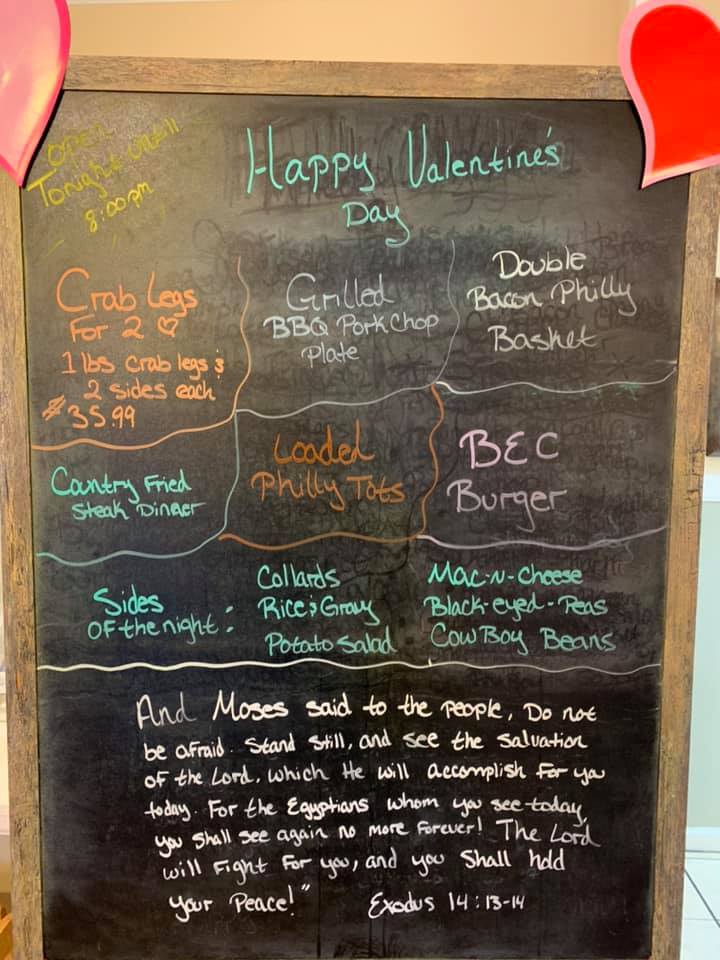 Open
Tonight until
8:00pm
Happy Valentine's
Day
Crab Legs
For 2 ♡
1 lbs crab legs &
2 sides each
$35.99
Grilled
BBQ Pork Chop
Plate
Double
Bacon Philly
Basket
Country Fried
Steak Dinner
Loaded
Philly Tots
BEC
Burger
Sides
OF the night:
Collards
Rice & Gravy
Potato Salad
Mac-N-Cheese
Black-eyed-Peas
CowBoy Beans
And Moses said to the people, Do not
be afraid. Stand Still, and see the salvation
of the Lord, which He will accomplish for you
today. For the Egyptians whom you see today,
you shall see again no more forever! The Lord
will Fight For you, and you shall hold
your Peace!" Exodus 14:13-14